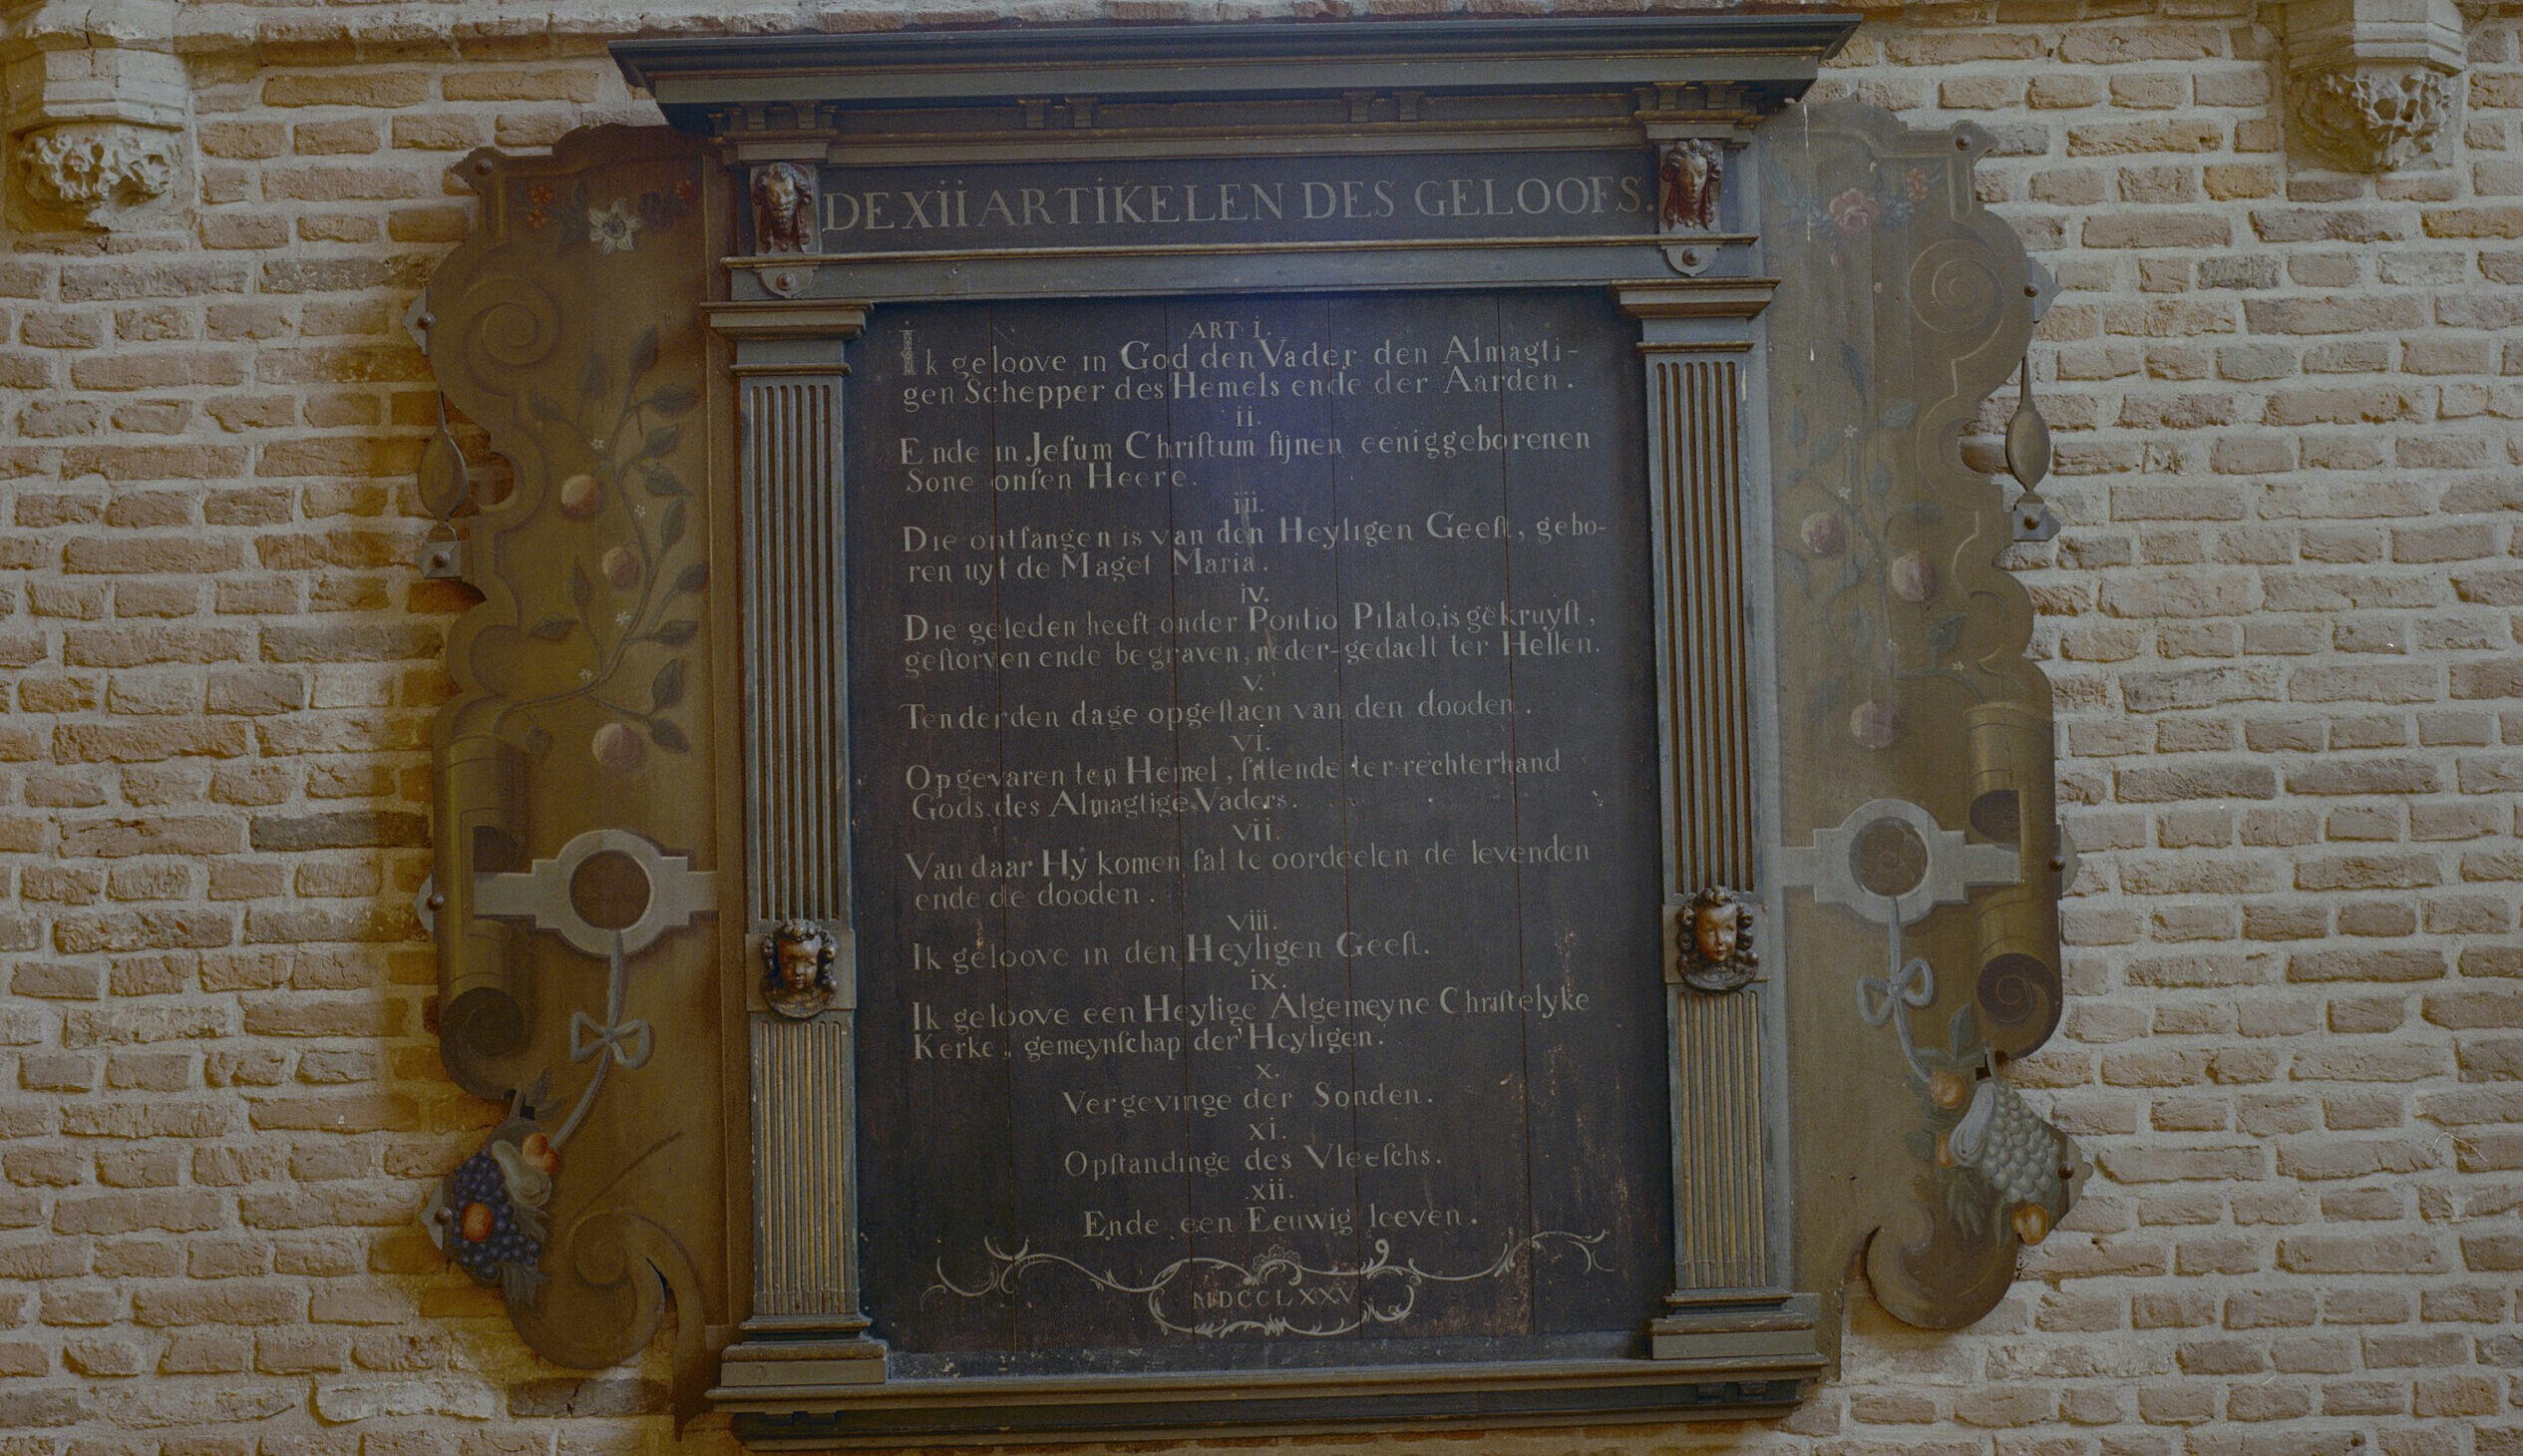 DE XII ARTIKELEN DES GELOOFS.
ART i.
Ik geloove in God den Vader den Almagti-
gen Schepper des Hemels ende der Aarden.
ii.
Ende in Jeſum Chriſtum ſijnen eeniggeborenen
Sone onſen Heere.
iii.
Die ontfangen is van den Heyligen Geeſt, gebo-
ren uyt de Maget Maria.
iv.
Die geleden heeft onder Pontio Pilato, is gekruyſt,
geſtorven ende begraven, neder-gedaelt ter Hellen.
v.
Ten derden dage opgeſtaen van den dooden.
vi.
Opgevaren ten Hemel, ſittende ter rechterhand
Gods des Almagtige Vaders.
vii.
Van daar Hy komen ſal te oordeelen de levenden
ende de dooden.
viii.
Ik geloove in den Heyligen Geeſt.
ix.
Ik geloove een Heylige Algemeyne Chriſtelyke
Kerke, gemeynſchap der Heyligen.
x.
Vergevinge der Sonden.
xi.
Opſtandinge des Vleeſchs.
xii.
Ende een Eeuwig leeven.
MDCCLXXV